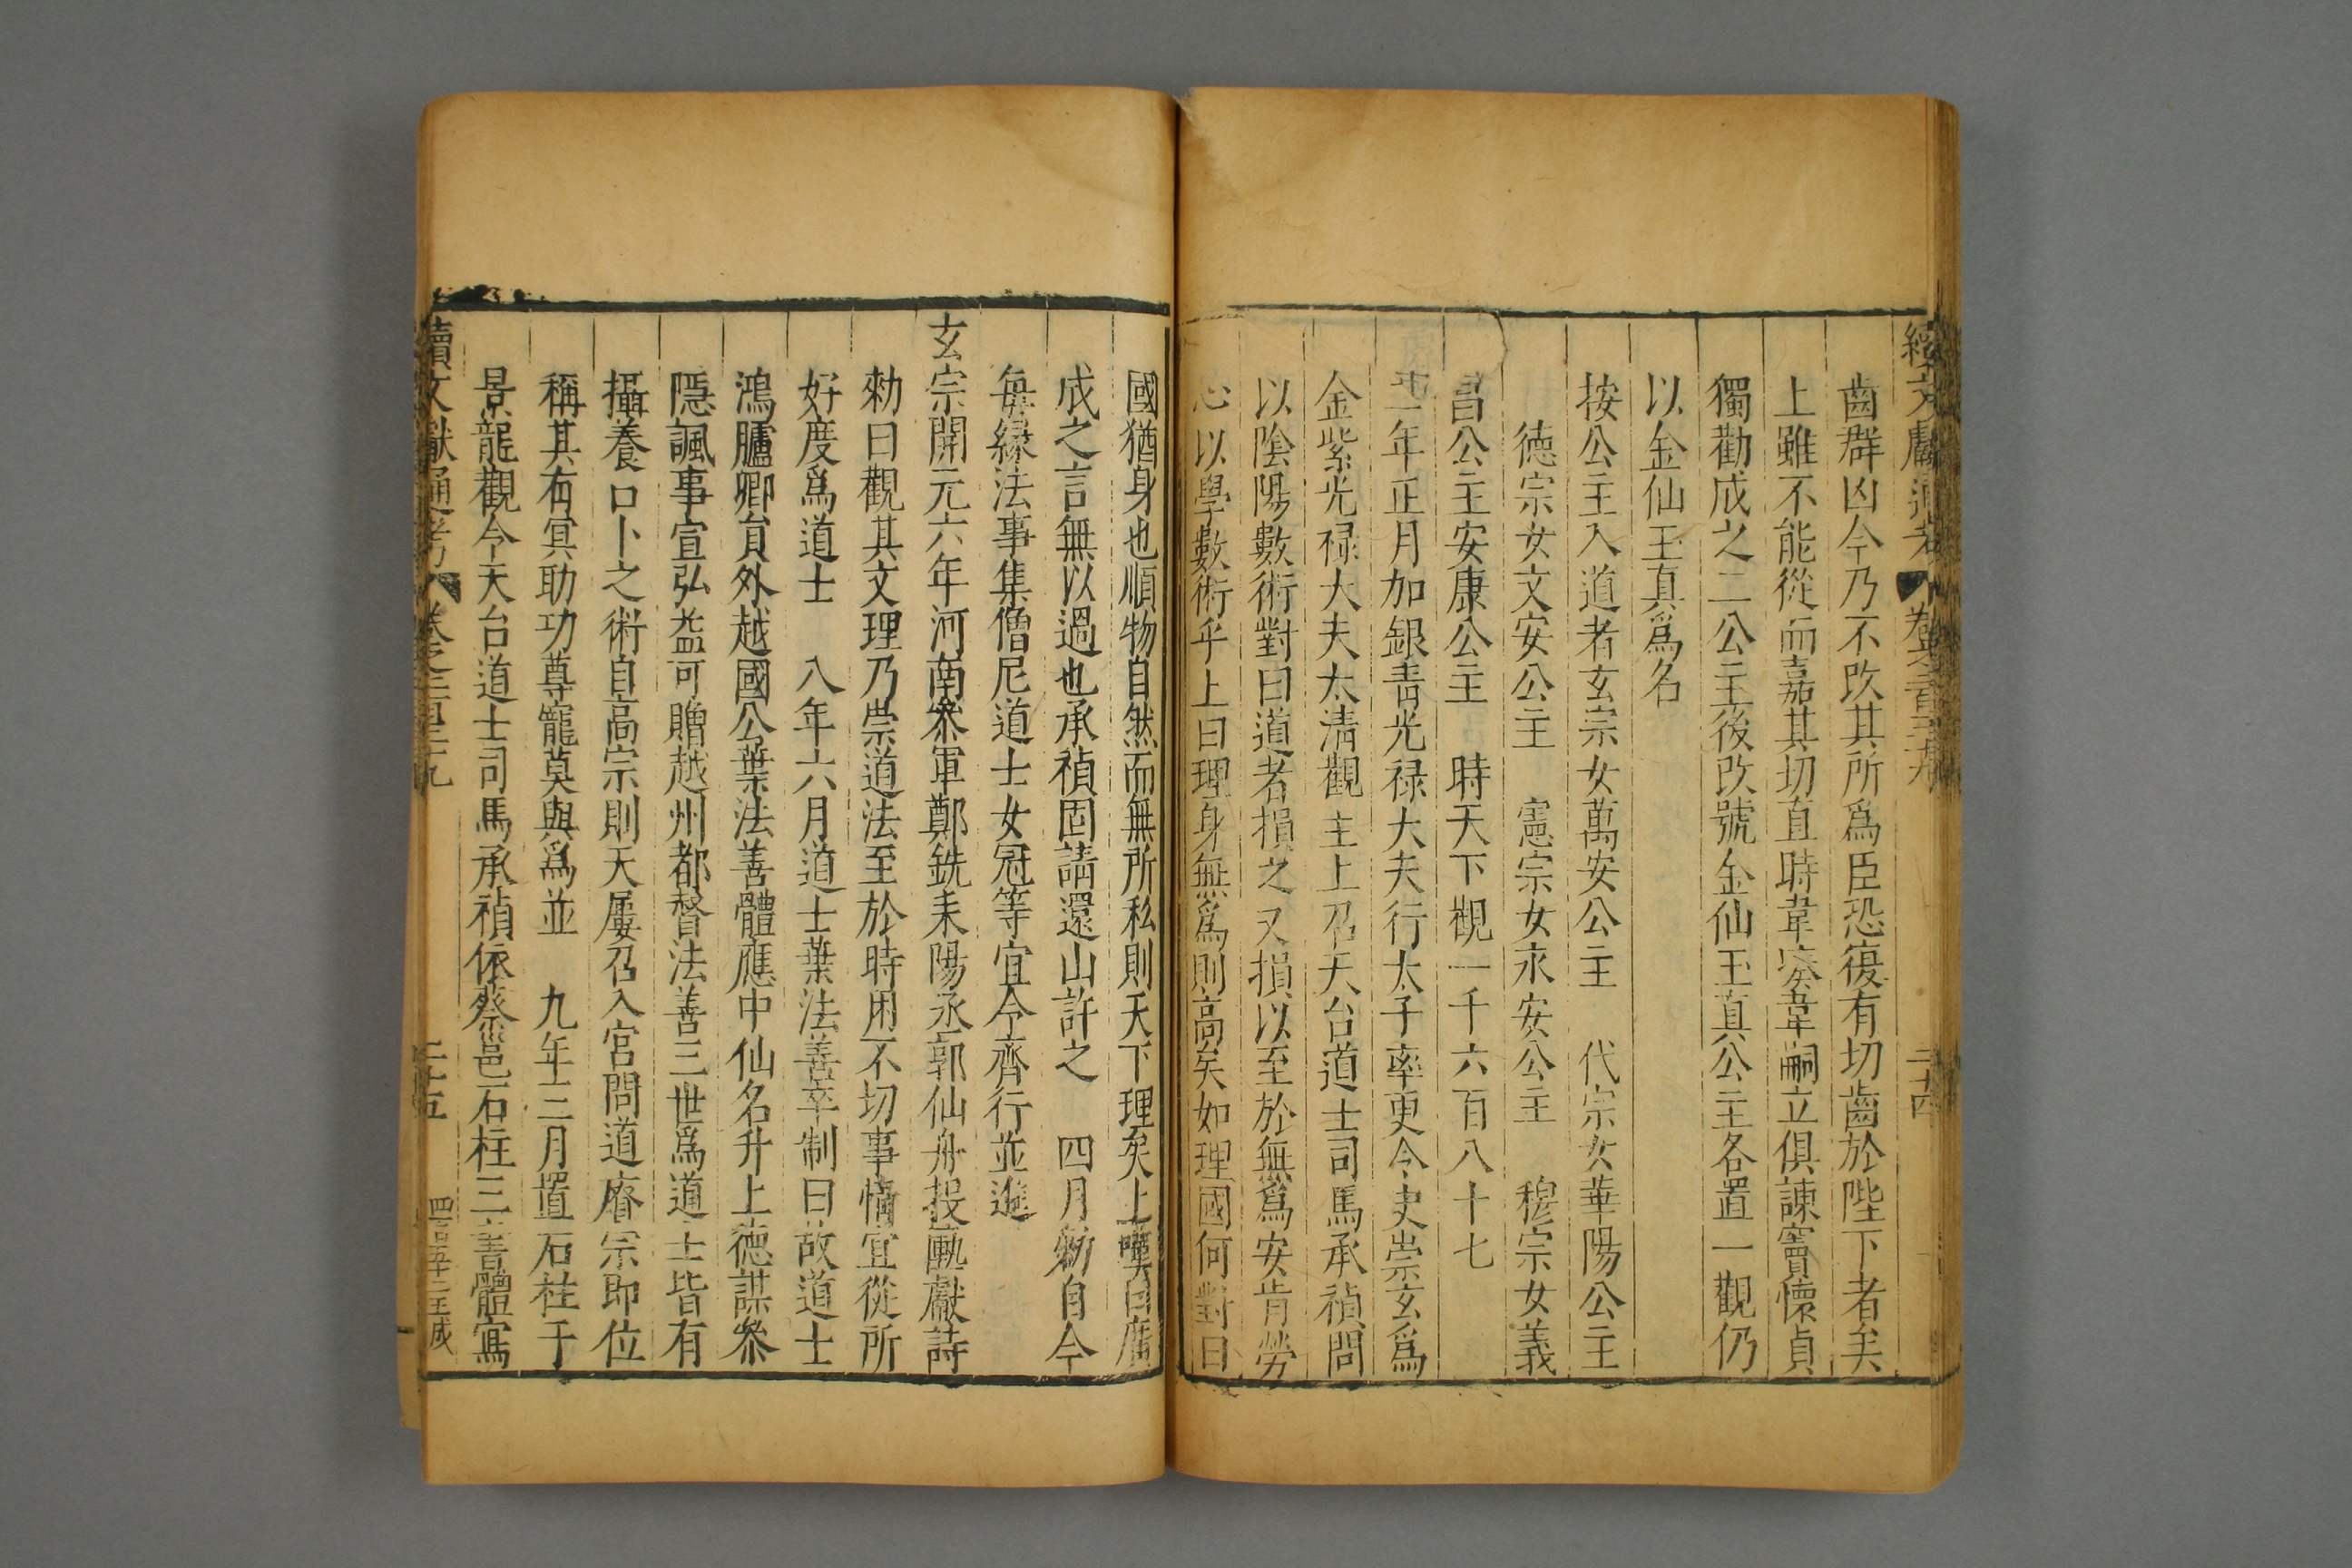 續文獻通考
齒群凶今乃不改其所爲臣恐復有切齒於陛下者矣
上雖不能從而嘉其切直時韋湊韋嗣立俱諫竇懷貞
獨勸成之二公主後改號金仙玉真公主各置一觀仍
以金仙玉真爲名
按公主入道者玄宗女萬安公主 代宗女華陽公主
德宗女文安公主 憲宗女永安公主 穆宗女義
昌公主安康公主 時天下觀一千六百八十七
二年正月加銀青光禄大夫行太子率更令史崇玄爲
金紫光禄大夫太清觀主上召天台道士司馬承禎問
以陰陽數術對曰道者損之又損以至於無爲安肯勞
心以學數術乎上曰理身無爲則高矣如理國何對曰
國猶身也順物自然而無所私則天下理矣上嘆曰廣
成之言無以過也承禎固請還山許之 四月勑自今
每緣法事集僧尼道士女冠等宜令齊行並進
玄宗開元六年河南參軍鄭銑朱陽丞郭仙舟投匭獻詩
勑曰觀其文理乃崇道法至於時用不切事情宜從所
好度爲道士 八年六月道士葉法善卒制曰故道士
鴻臚卿員外越國公葉法善體應中仙名升上德謀參
隱諷事宣弘益可贈越州都督法善三世爲道士皆有
攝養口卜之術自高宗則天屢召入宮問道睿宗即位
稱其有冥助功尊寵莫與爲並 九年三月置石柱于
景龍觀令天台道士司馬承禎依蔡邕石柱三書體寫
續文獻通考 卷之二百四十九 二十五